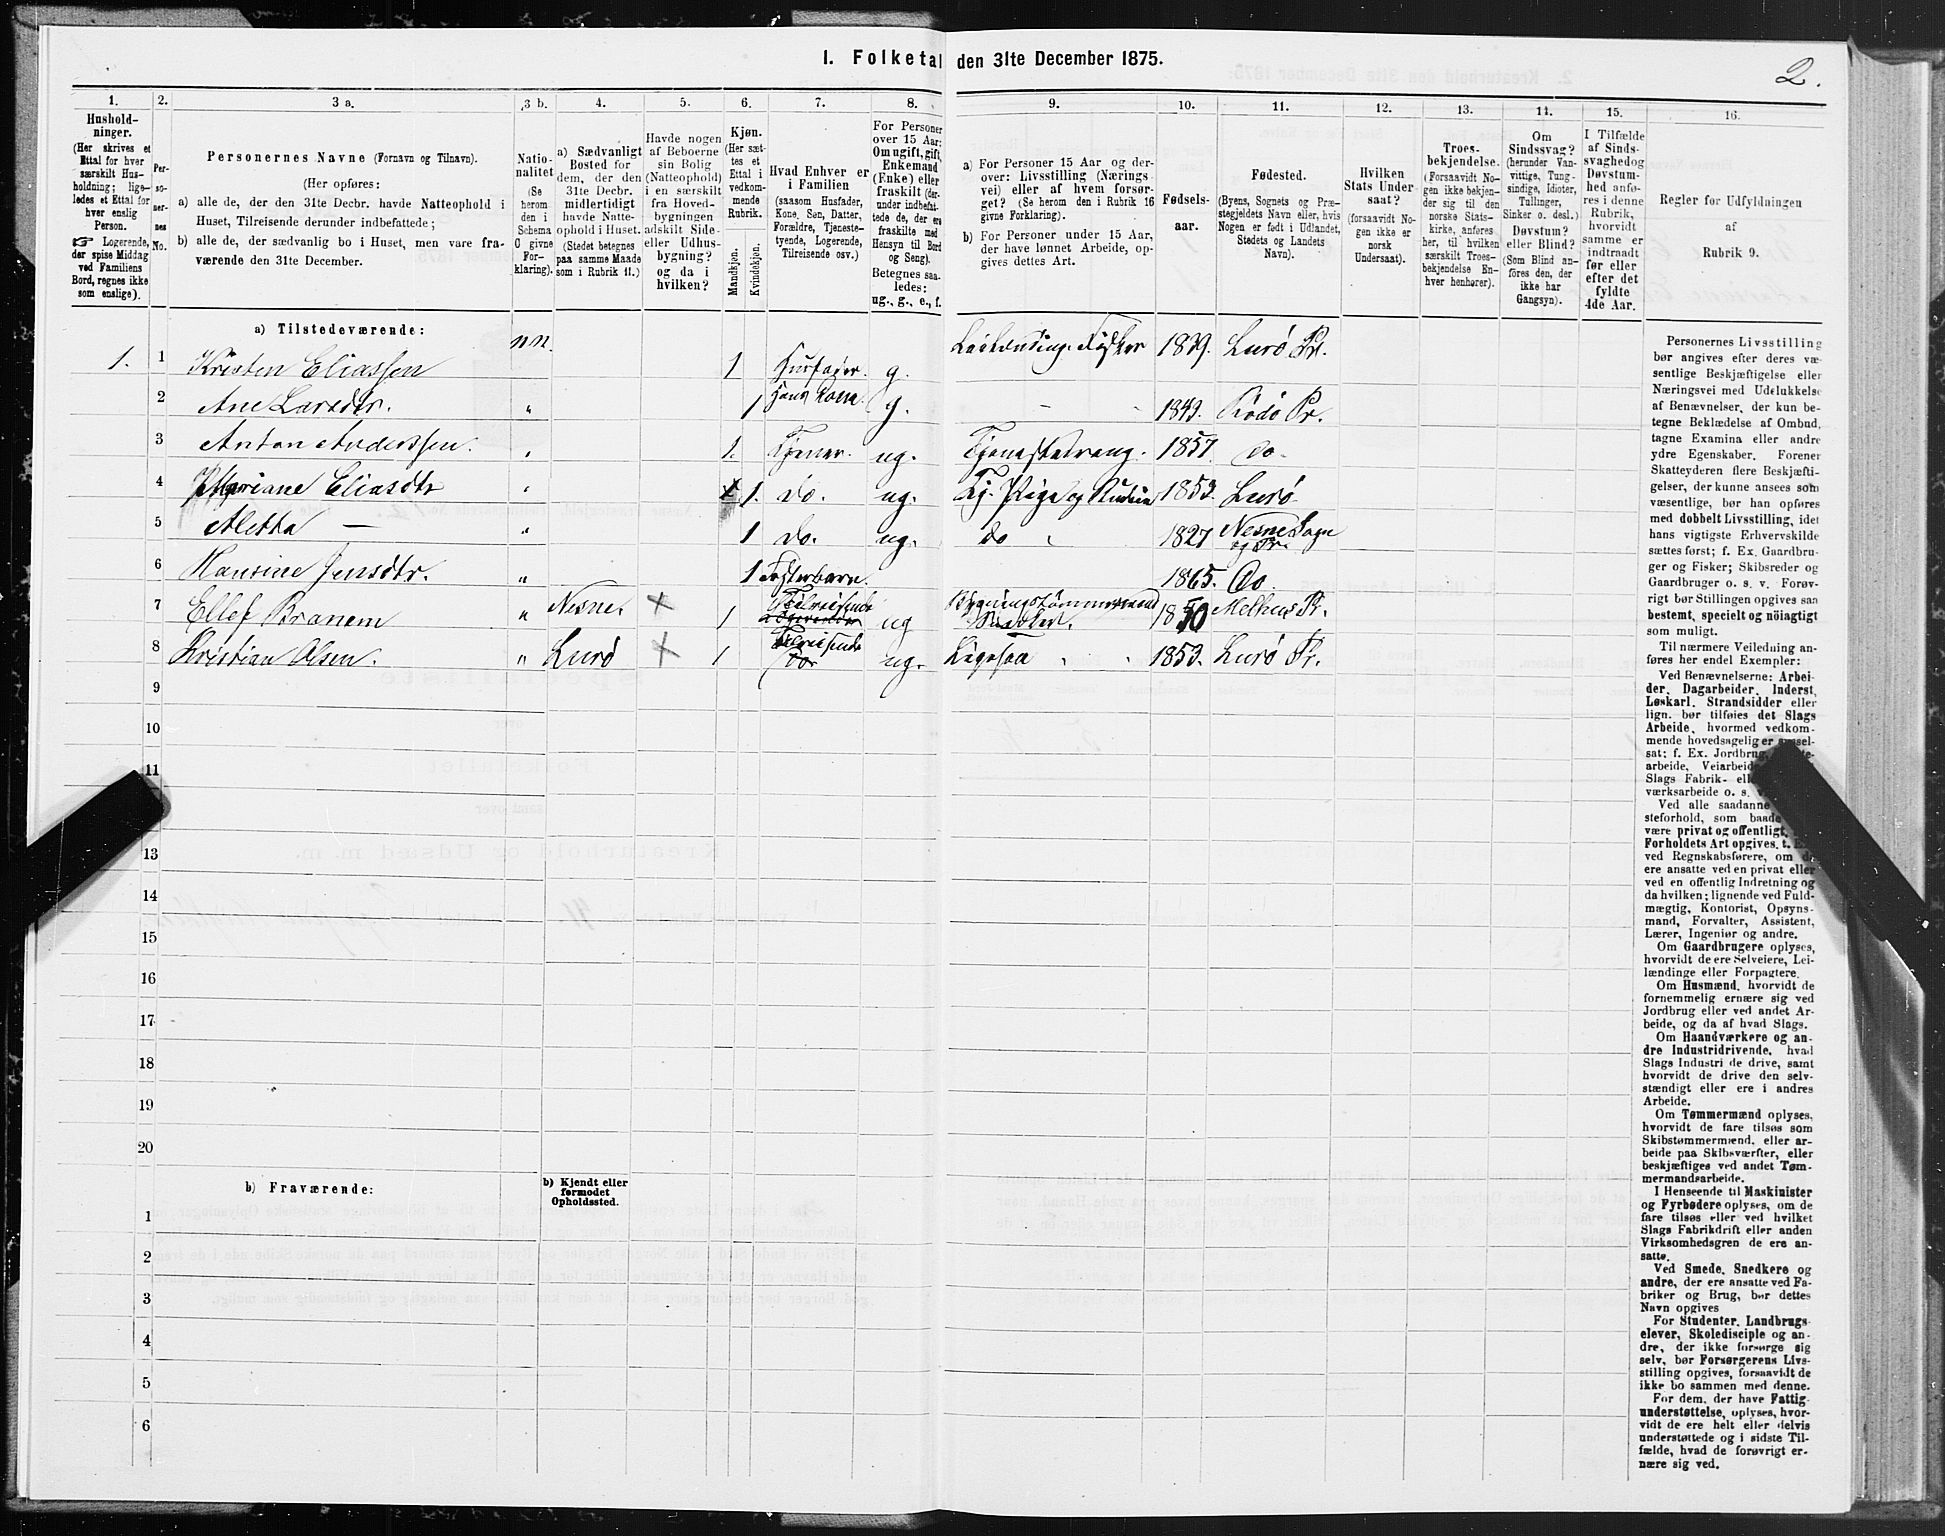 I. Folketal den 31te December 1875.
2.
1. 2. 3 a. 3 b. 4. 5. 6. 7. 8. 9. 10. 11. 12. 13. 14. 15. 16.
Hushold-
ninger.
(Her skrives et
Ettal for hver
særskilt Hus-
holdning; lige-
ledes et Ettal for
hver enslig
Person.
☞ Logerende,
der spise Middag
ved Familiens
Bord, regnes ikke
som enslige).
Per-
so-
ner-
nes
No.
Personernes Navne (Fornavn og Tilnavn).
(Her opføres:
a) alle de, der den 31te Decbr. havde Natteophold i
Huset, Tilreisende derunder indbefattede;
b) alle de, der sædvanlig bo i Huset, men vare fra-
værende den 31te December.
Natio-
nalitet
(Se
herom
den i
Schema
O givne
For-
klaring).
a) Sædvanligt
Bosted for
dem, der den
31te Decbr.
midlertidigt
havde Natte-
ophold i Huset.
(Stedet betegnes
paa samme Maade
som i Rubrik 11.)
Havde nogen
af Beboerne
sin Bolig
(Natteophold)
i en særskilt
fra Hoved-
bygningen
adskilt Side-
eller Udhus-
bygning?
og da i
hvilken?
Kjøn.
(Her sæt-
tes et
Ettal i
vedkom-
mende
Rubrik.
Mandkjøn.
Kvindekjøn.
Hvad Enhver er
i Familien
(saasom Husfader,
Kone, Søn, Datter,
Forældre, Tjeneste-
tyende, Logerende,
Tilreisende osv.)
For Personer
over 15 Aar:
Om ugift, gift,
Enkemand
(Enke) eller
fraskilt (der-
under indbefat-
tede de, der ere
fraskilte med
Hensyn til Bord
og Seng).
Betegnes saa-
ledes:
ug., g., e., f.
a) For Personer 15 Aar og der-
over: Livsstilling (Nærings-
vei) eller af hvem forsør-
get? (Se herom den i Rubrik 16
givne Forklaring).
b) For Personer under 15 Aar,
der have lønnet Arbeide, op-
gives dettes Art.
Fødsels-
aar.
Fødested.
(Byens, Sognets og Præ-
stegjeldets Navn eller, hvis
Nogen er født i Udlandet,
Stedets og Landets
Navn).
Hvilken
Stats Under-
saat?
(forsaavidt No-
gen ikke er
norsk
Undersaat).
Troes-
bekjendelse.
(Forsaavidt No-
gen ikke bekjen-
der sig til den
norske Stats-
kirke, anføres
her, til hvilken
særskilt Troes-
bekjendelse En-
hver henhører).
Om
Sindssvag?
(herunder Van-
vittige, Tung-
sindige, Idioter,
Tullinger,
Sinker o. desl.)
Døvstum?
eller Blind?
(Som Blind an-
føres den, der
ikke har
Gangsyn).
I Tilfælde
af Sinds-
svaghed og
Døvstum-
hed anfø-
res i denne
Rubrik,
hvorvidt
samme er
indtraadt
før eller
efter det
fyldte
4de Aar.
Regler for Udfyldningen
af
Rubrik 9.
a) Tilstedeværende:
1. 1 Kristen Eliassen nn. 1 Husfader g. Leilænding. Fisker 1839. Lurø Pr.
2 Ane Larsdtr. " 1 Hans Kone. g. - - 1843. Rødø Pr.
3 Anton Anderssen. " 1. Tjener. ug. 1857. Do.
4 Mariane Eliasdtr " 1. do. ug. Tj. Pige 1853. Lurø
5 Aletta — " 1 do. ug. do " 1827 Nesne Sogn
og Pr.
6 Hansine Jensdtr. " 1 Fosterbarn. 1865. Do.
7 Ellef Branem " Nesne. × 1 Tilreisende ug 1850 Melhus Pr.
8 Kristian Olsen. " Lurø × 1 Tilreisende ug. Ligesaa " " 1853. Lurø Pr.
9
10
11
13
14
15
16
17
18
19
20
b) Fraværende:
b) Kjendt eller
formodet
Opholdssted.
1
2
3
4
5
6
Personernes Livsstilling
bør angives efter deres væ-
sentlige Beskjæftigelse eller
Næringsvei med Udelukkelse
af Benævnelser, der kun be-
tegne Beklædelse af Ombud,
tagne Examina eller andre
ydre Egenskaber. Forener
Skatteyderen flere Beskjæfti-
gelser, der kunne ansees som
væsentlige, bør han opføres
med dobbelt Livsstilling, idet
hans vigtigste Erhvervskilde
sættes først; f. Ex. Gaardbru-
ger og Fisker; Skibsreder og
Gaardbruger o. s. v. Forøv-
rigt bør Stillingen opgives saa
bestemt, specielt og nøiagtigt
som muligt.
Til nærmere Veiledning an-
føres her endel Exempler:
Ved Benævnelserne: Arbei-
der, Dagarbeider, Inderst,
Løskarl, Strandsidder eller
lign. bør tilføies det Slags
Arbeide, hvormed vedkom-
mende hovedsagelig er syssel-
sat; f. Ex. Jordbrug,
arbeide, Veiarbeide
Slags Fabrik-
værksarbeide o. s.
Ved alle saadanne
steforhold, som baade
være privat og offentligt,
Forholdets Art opgives, t. Ex.
ved Regnskabsførere, om de
ere ansatte ved en privat eller
ved en offentlig Indretning og
da hvilken; lignende ved Fuld-
mægtig, Kontorist, Opsyns-
mand, Forvalter, Assistent,
Lærer, Ingeniør og andre.
Om Gaardbrugere oplyses,
hvorvidt de ere Selveiere, Lei-
lændinge eller Forpagtere.
Om Husmænd, hvorvidt de
fornemmelig ernære sig ved
Jordbrug eller ved andet Ar-
beide, og da af hvad Slags.
Om Haandværkere og an-
dre Industridrivende, hvad
Slags Industri de drive, samt
hvorvidt de drive den selv-
stændigt eller ere i andres
Arbeide.
Om Tømmermænd oplyses,
hvorvidt de fare tilsøs som
Skibstømmermænd, eller ar-
beide paa Skibsværfter, eller
beskjæftiges ved andet Tøm-
mermandsarbeide.
I Henseende til Maskinister
og Fyrbødere oplyses, om de
fare tilsøs eller ved hvilket
Slags Fabrikdrift eller anden
Virksomhedsgren de ere an-
satte.
Ved Smede, Snedkere og
andre, der ere ansatte ved Fa-
briker og Brug, bør dettes
Navn opgives
For Studenter, Landbrugs-
elever, Skoledisciple og an-
dre, der ikke forsørge sig
selv, bør Forsørgerens Livs-
stilling opgives, forsaavidt de
ikke bo sammen med denne.
For dem, der have Fattig-
understøttelse, oplyses, hvor-
vidt de ere helt eller delvis
understøttede og i sidste Til-
fælde, hvad de forøvrigt er-
nære sig ved.